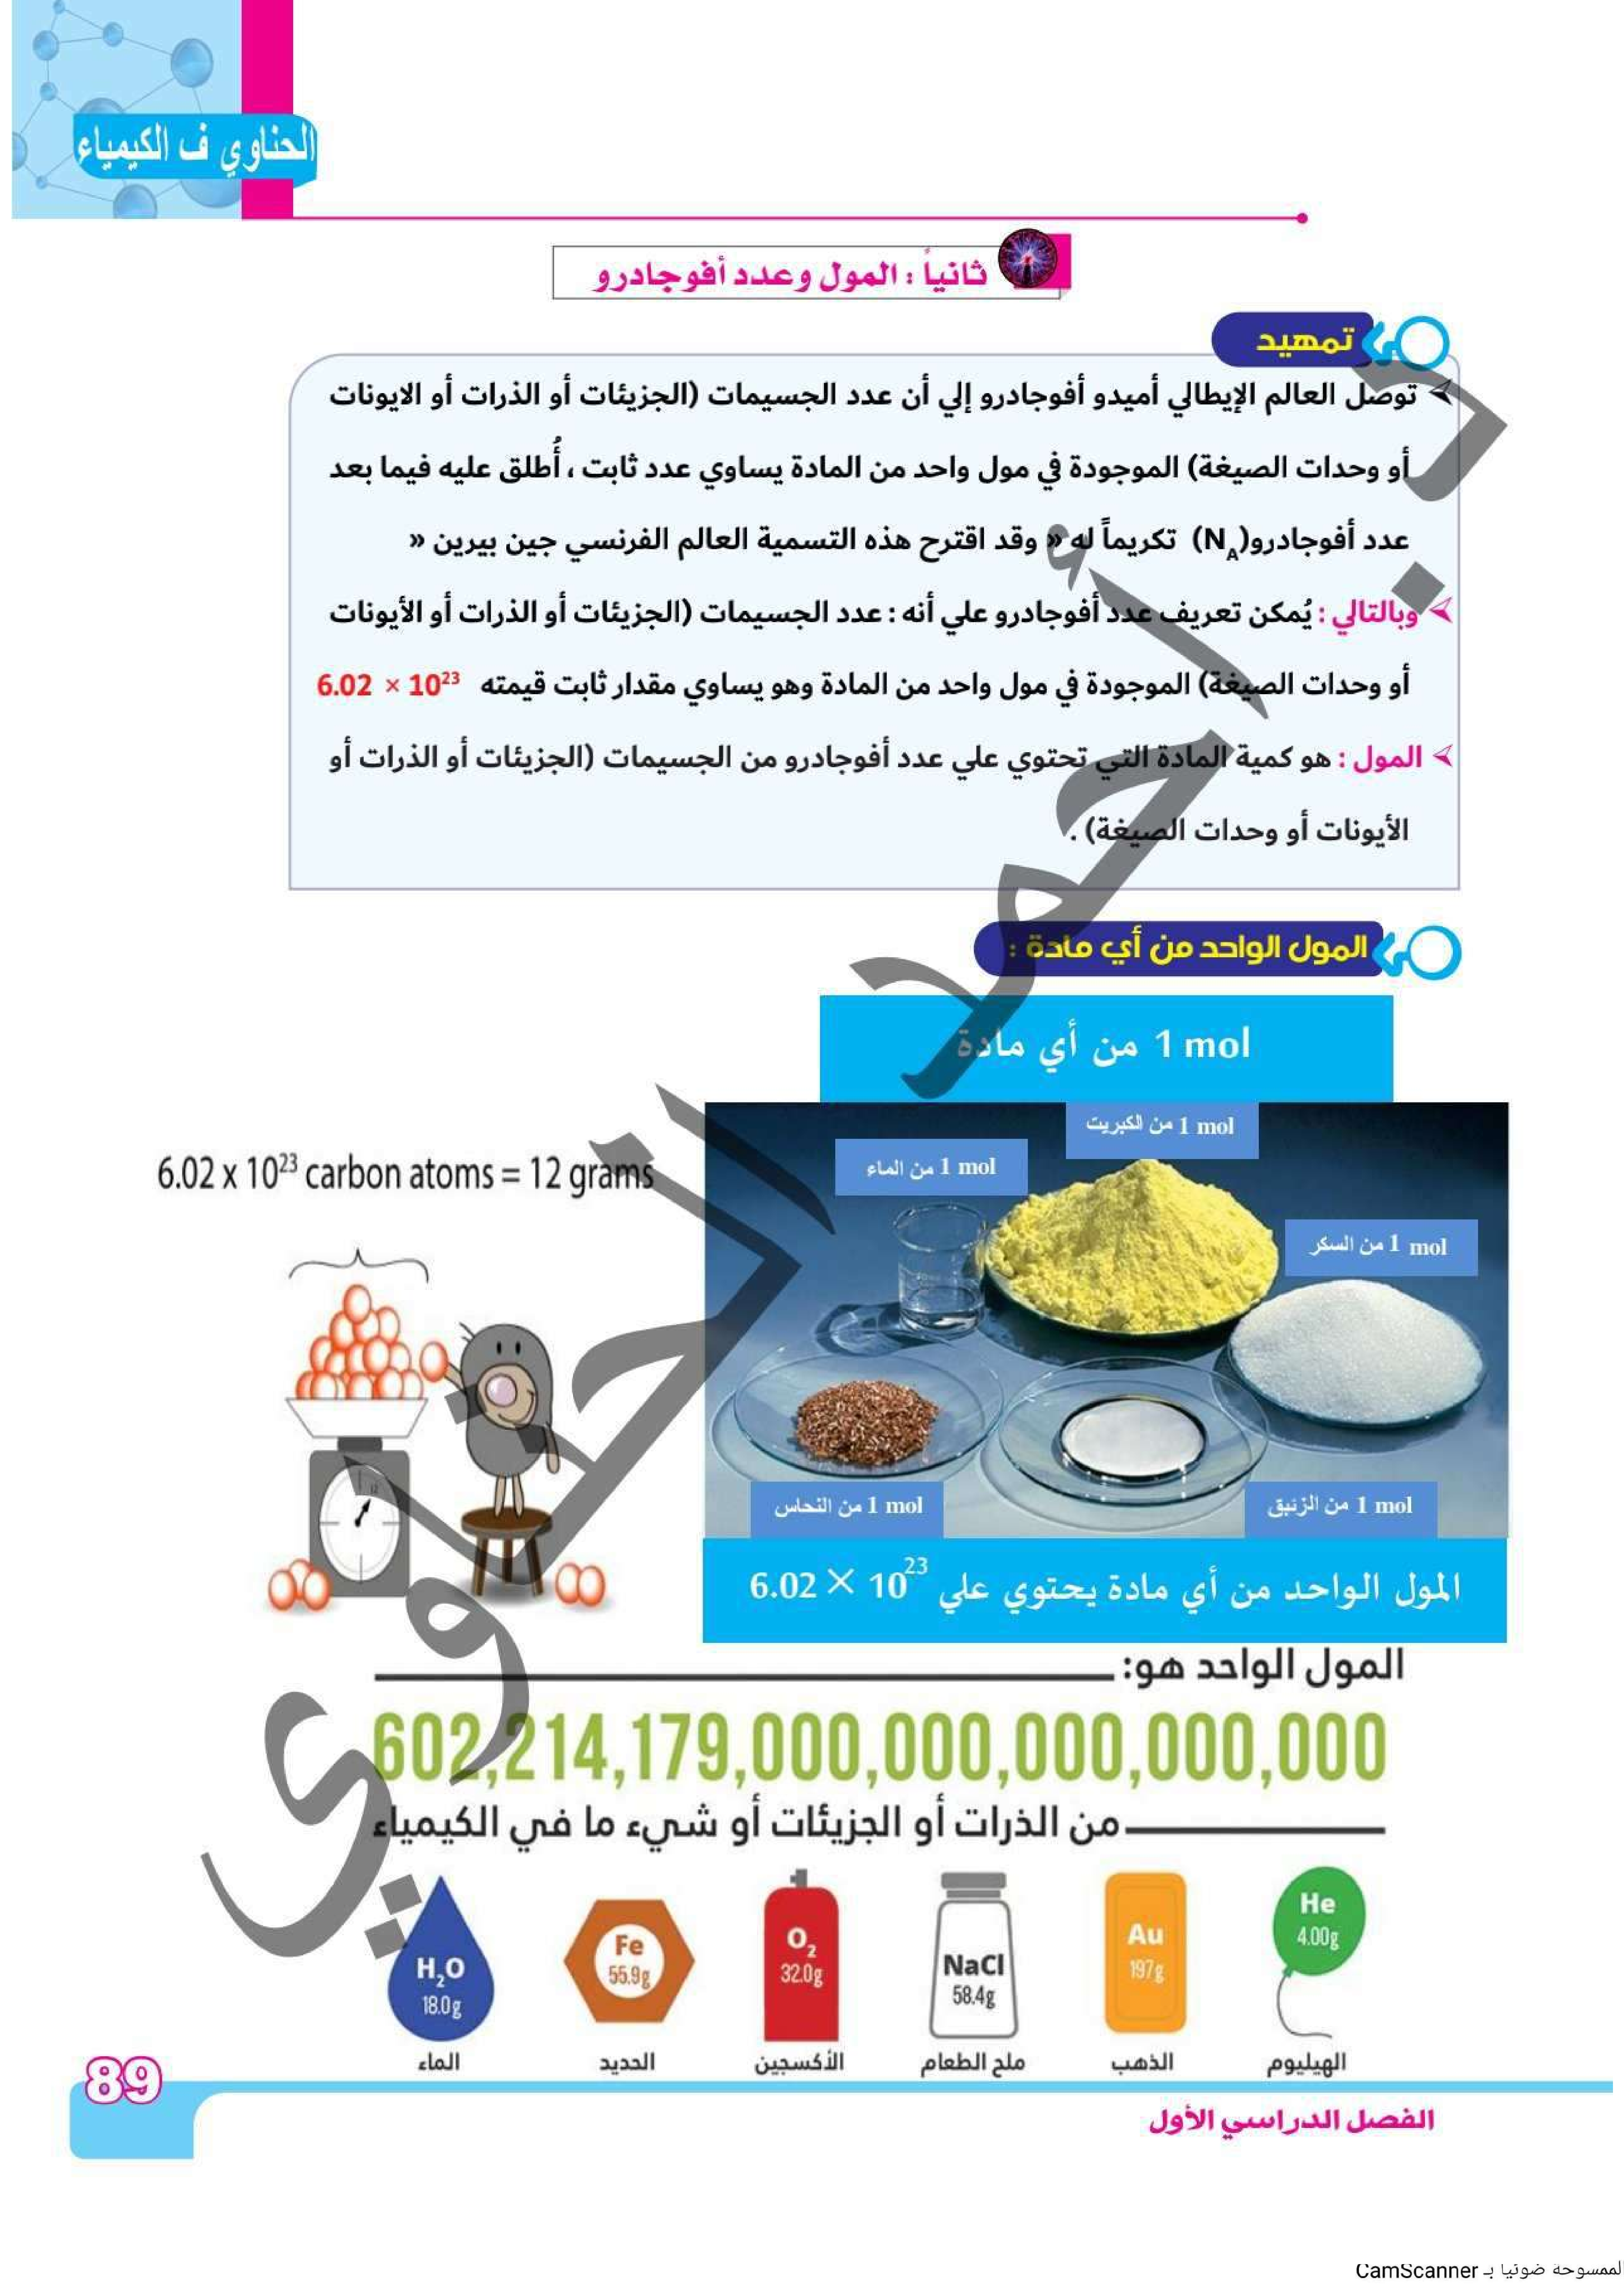 الحناوي ف الكيمياء
ثانياً : المول وعدد أفوجادرو
تمهيد
توصل العالم الإيطالي أميدو أفوجادرو إلي أن عدد الجسيمات (الجزيئات أو الذرات أو الايونات
أو وحدات الصيغة) الموجودة في مول واحد من المادة يساوي عدد ثابت ، أُطلق عليه فيما بعد
عدد أفوجادرو(N_A) تكريماً له « وقد اقترح هذه التسمية العالم الفرنسي جين بيرين »
وبالتالي : يُمكن تعريف عدد أفوجادرو علي أنه : عدد الجسيمات (الجزيئات أو الذرات أو الأيونات
أو وحدات الصيغة) الموجودة في مول واحد من المادة وهو يساوي مقدار ثابت قيمته 6.02 × 10²³
المول : هو كمية المادة التي تحتوي علي عدد أفوجادرو من الجسيمات (الجزيئات أو الذرات أو
الأيونات أو وحدات الصيغة) .
المول الواحد من أي مادة :
1 mol من أي مادة
1 mol من الكبريت
1 mol من الماء
6.02 x 10²³ carbon atoms = 12 grams
1 mol من السكر
1 mol من النحاس
1 mol من الزئبق
المول الواحد من أي مادة يحتوي علي 6.02 × 10²³
المول الواحد هو:
602,214,179,000,000,000,000,000
من الذرات أو الجزيئات أو شيء ما في الكيمياء
He
4.00g
الهيليوم
Au
197g
الذهب
NaCl
58.4g
ملح الطعام
O₂
32.0g
الأكسجين
Fe
55.9g
الحديد
H₂O
18.0g
الماء
89
الفصل الدراسي الأول
د. أحمد الحناوي
لممسوحة ضوئيا بـ CamScanner